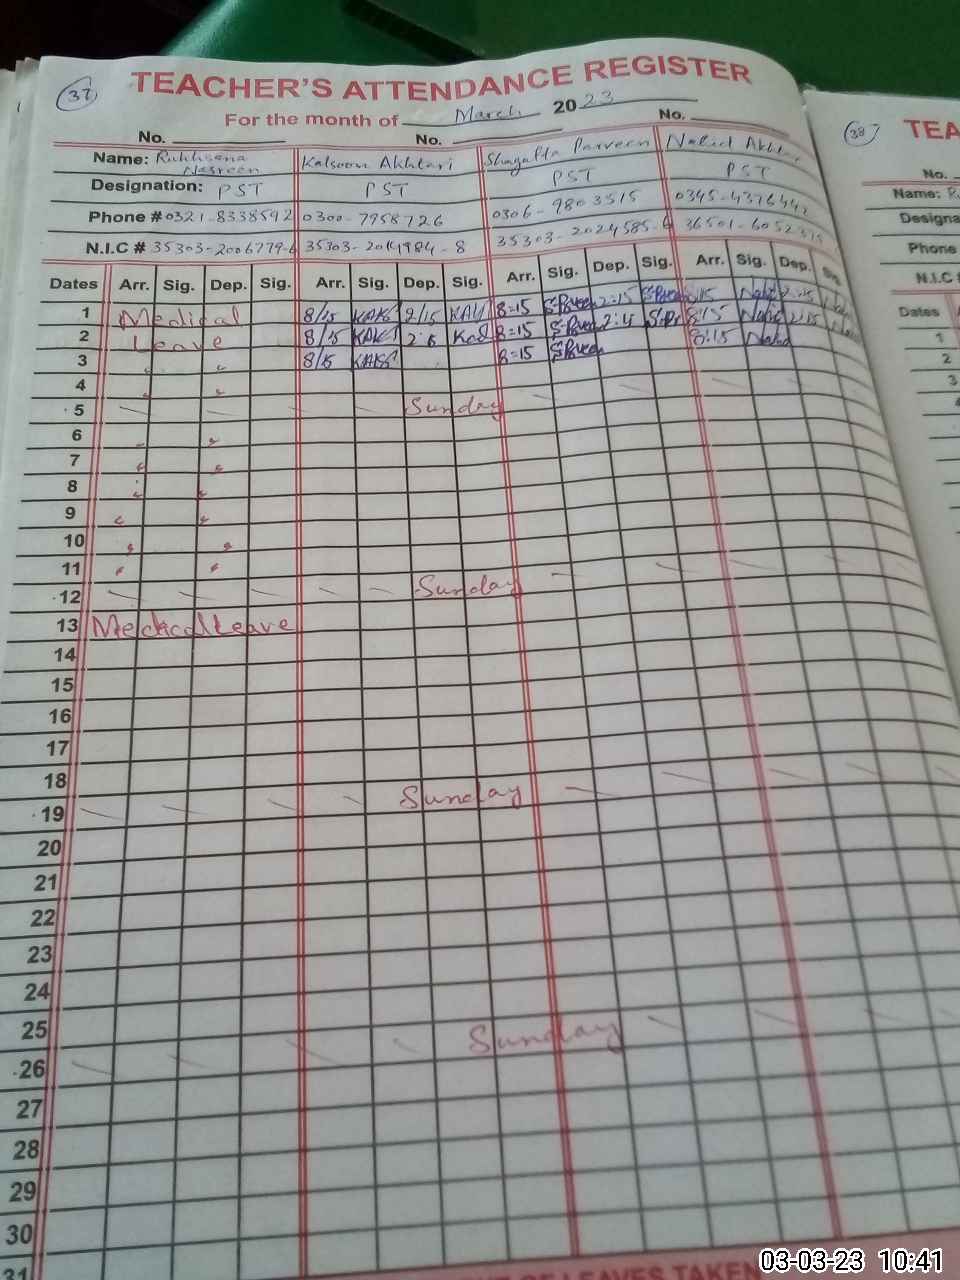 37
TEACHER'S ATTENDANCE REGISTER
For the month of March 2023
No. No. No.
Name: Rukhsana Nasreen Kalsoon Akhtari Shagufta Parveen Nahid Akhtar
Designation: PST PST PST PST
Phone # 0321-8338592 0300-7958726 0306-9803515 0345-4376442
N.I.C # 35303-2006779-6 35303- 35303-2024585-6 36501-
Dates Arr. Sig. Dep. Sig. Arr. Sig. Dep. Sig. Arr. Sig. Dep. Sig. Arr. Sig. Dep. Sig.
1 Medical 8/15 2/15 8=15 2=15
2 Leave 8/15 8=15 8:15 2:15
3 8/15 8=15 8:15
4
5 Sunday
6
7
8
9
10
11
12 Sunday
13 Medical Leave
14
15
16
17
18
19 Sunday
20
21
22
23
24
25 Sunday
26
27
28
29
30
31
LEAVES TAKEN
38
TEA
No.
Name: R
Designa
Phone
N.I.C
Dates
1
2
3
03-03-23 10:41